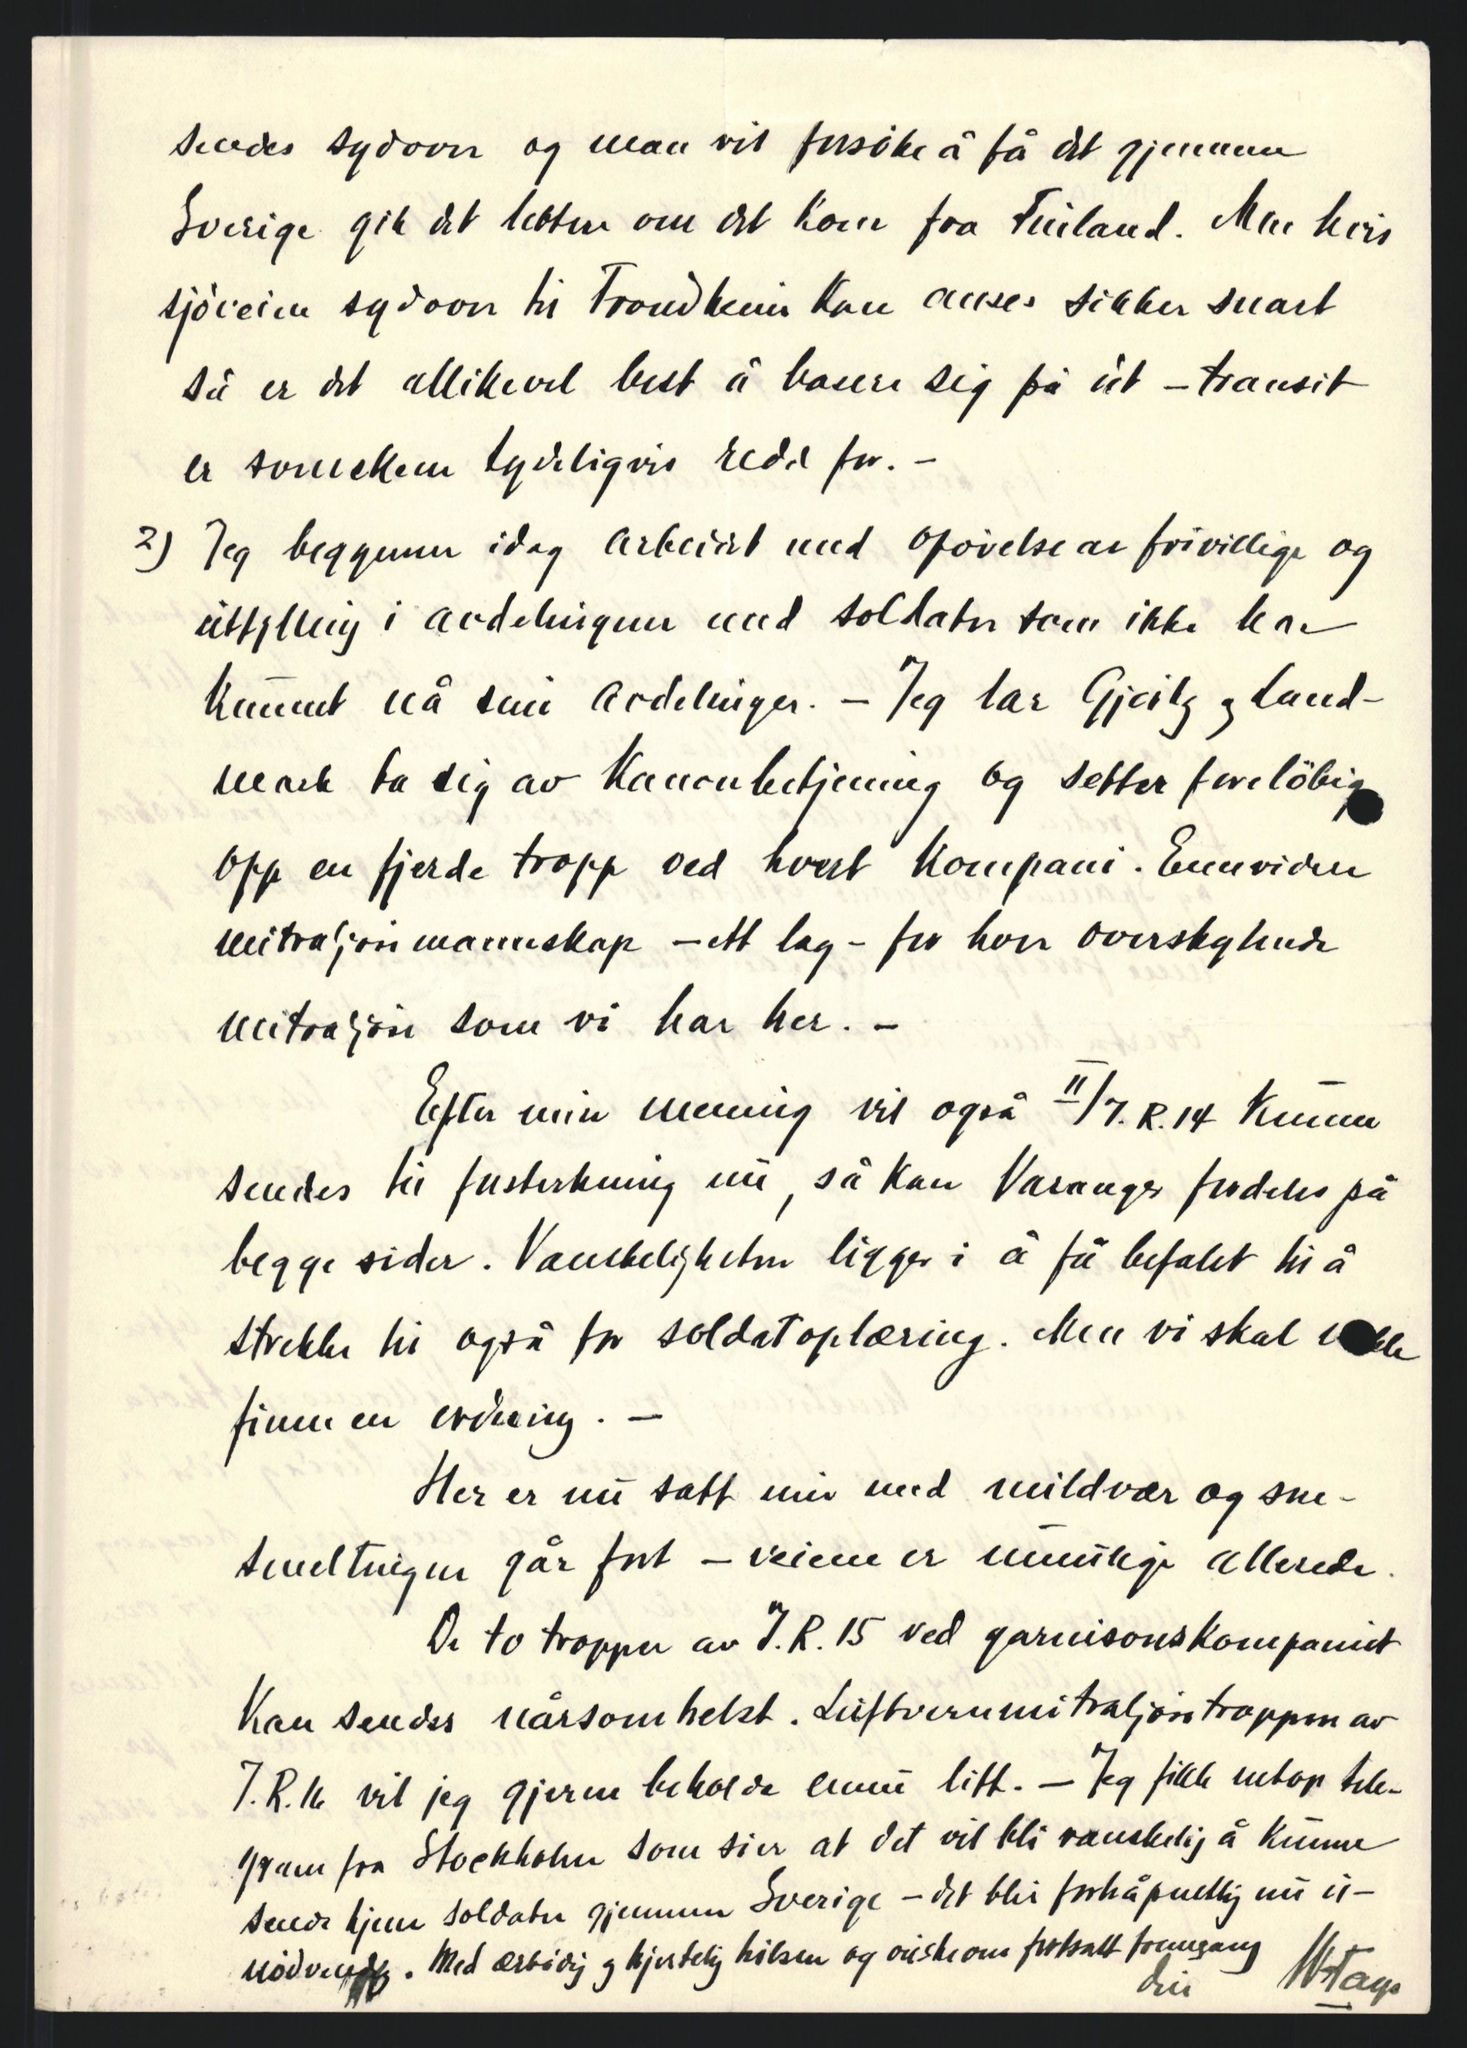 sendes sydover og man vil forsöke å få det gjennem
Sverige gik det lettere om det kom fra Finland. Men hvis
sjöveien sydover til Trondheim kan anses sikker snart
så er det allikevel best å basere sig på det - transit
er svenskene tydeligvis redd for. -
2) Jeg begynner idag arbeidet med opövelse av frivillige og
utfylling i avdelingene med soldater som ikke har
kunnet nå sine avdelinger. - Jeg lar Gjertz og Land-
mark ta sig av kanonbetjening og setter forelöbig
opp en fjerde tropp ved hvert kompani. Ennvidere
mitraljösemannskap - ett lag - for hver overskytende
mitraljöse som vi har her. -
Efter min mening vil også II/I.R.14 kunne
sendes til forsterkning nu, så kan Varanger fordeles på
begge sider. Vanskeligheten ligger i å få befalet til å
strekke til også for soldatoplæring. Men vi skal nokk
finne en ordning. -
Her er nu satt inn med mildvær og sne-
smeltningen går fort - veiene er umulige allerede.
De to tropper av I.R.15 ved garnisonskompaniet
kan sendes nårsomhelst. Luftvernmitraljösetroppen av
I.R.16 vil jeg gjerne beholde ennu litt. - Jeg fikk netop tele-
gram fra Stockholm som sier at det vil bli vanskelig å kunne
sende hjem soldater gjennem Sverige - det blir forhåpentlig nu u-
nödvendig. Med ærbödig og hjertelig hilsen og önske om fortsatt fremgang
din